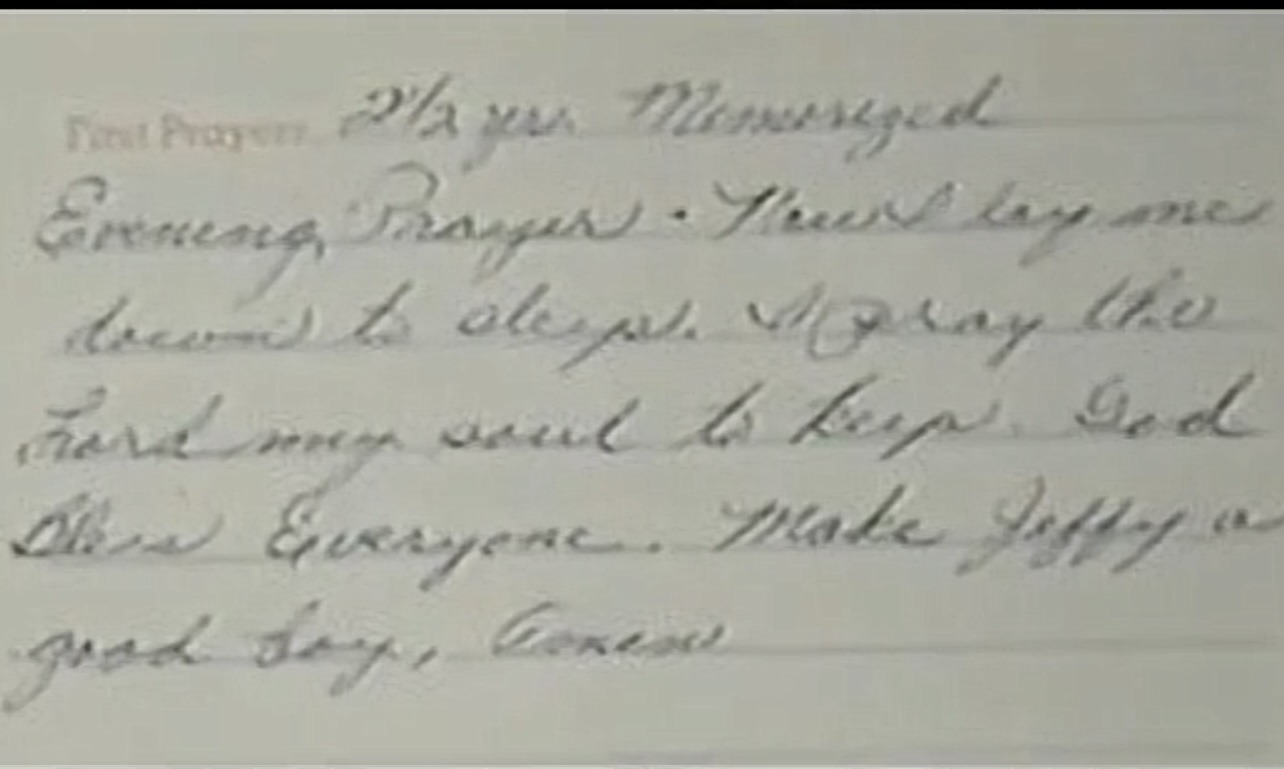 First Prayers 2 1/2 yrs. Memorized
Evening Prayer. Now I lay me
down to sleep. I pray the
Lord my soul to keep. God
Bless Everyone. Make Jeffy a
good boy, Amen